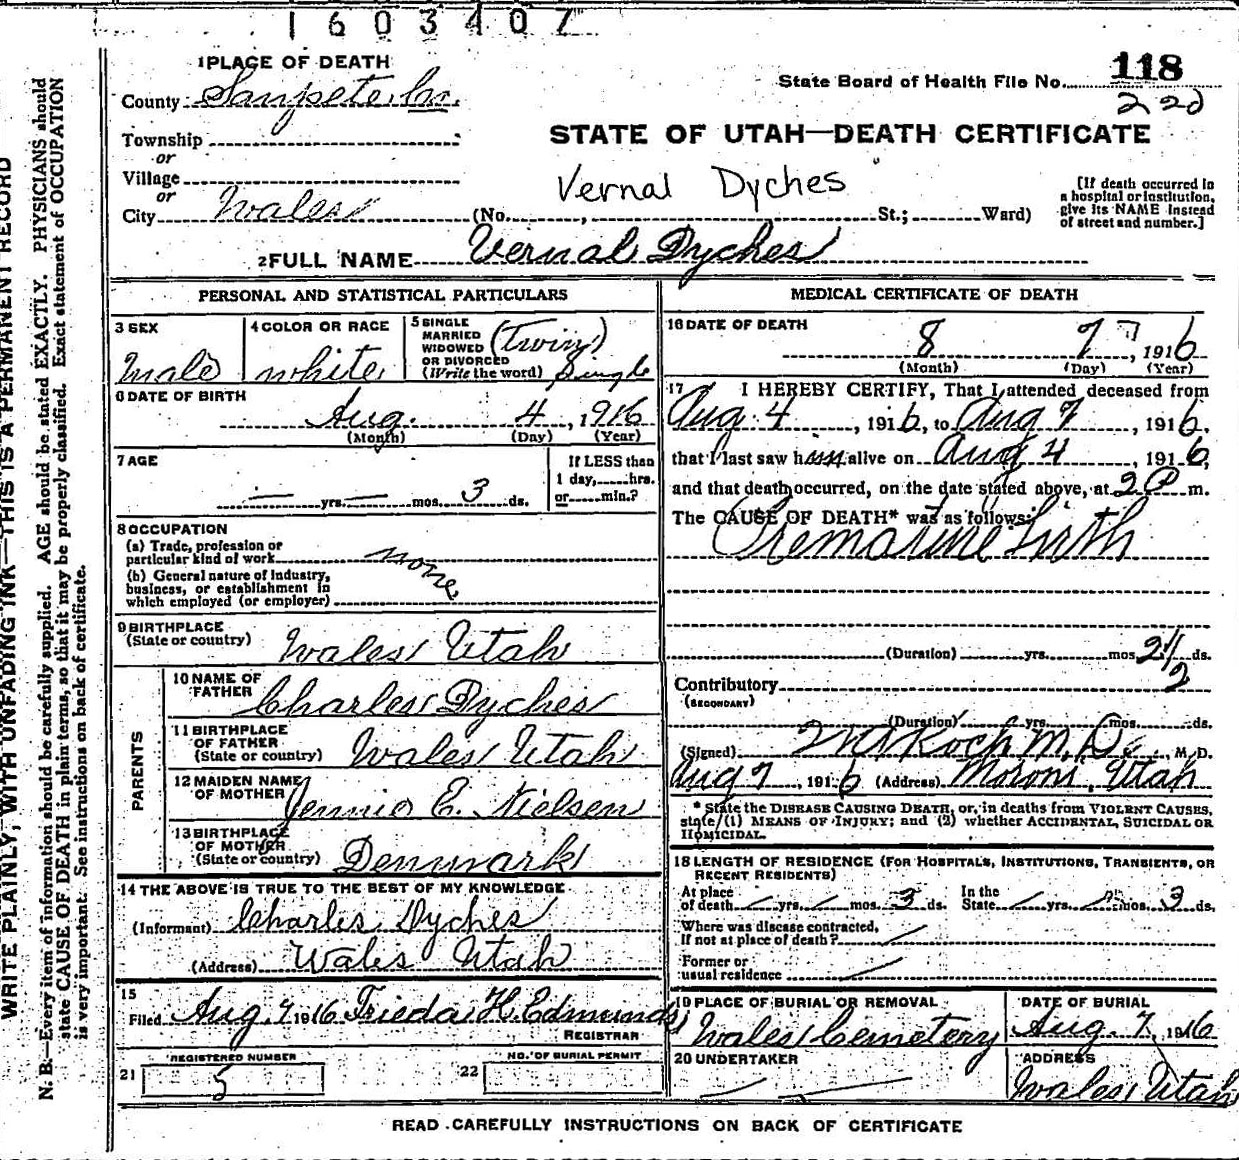 1603407
1 PLACE OF DEATH
State Board of Health File No. 118
County Sanpete Co.
220
Township
STATE OF UTAH—DEATH CERTIFICATE
or
Village
Vernal Dyches
[If death occurred in
a hospital or institution,
give its NAME instead
of street and number.]
or
City Wales (No. , St.; Ward)
2 FULL NAME Vernal Dyches
PERSONAL AND STATISTICAL PARTICULARS
3 SEX
Male
4 COLOR OR RACE
white
5 SINGLE
MARRIED
WIDOWED
OR DIVORCED
(Write the word)
(Twin)
Single
6 DATE OF BIRTH
Aug. 4, 1916
(Month) (Day) (Year)
7 AGE
— yrs. — mos. 3 ds.
If LESS than
1 day, hrs.
or min.?
8 OCCUPATION
(a) Trade, profession or
particular kind of work
none
(b) General nature of industry,
business, or establishment in
which employed (or employer)
9 BIRTHPLACE
(State or country) Wales Utah
PARENTS
10 NAME OF
FATHER Charles Dyches
11 BIRTHPLACE
OF FATHER
(State or country) Wales Utah
12 MAIDEN NAME
OF MOTHER Jennie E. Nielsen
13 BIRTHPLACE
OF MOTHER
(State or country) Denmark
14 THE ABOVE IS TRUE TO THE BEST OF MY KNOWLEDGE
(Informant) Charles Dyches
(Address) Wales Utah
15
Filed Aug. 7 1916 Frieda H. Edmunds
REGISTRAR
REGISTERED NUMBER
21 5
NO. OF BURIAL PERMIT
22
MEDICAL CERTIFICATE OF DEATH
16 DATE OF DEATH
8 7 7, 1916
(Month) (Day) (Year)
17 I HEREBY CERTIFY, That I attended deceased from
Aug. 4, 1916, to Aug 7, 1916,
that I last saw him alive on Aug 4, 1916,
and that death occurred, on the date stated above, at 2 P m.
The CAUSE OF DEATH* was as follows:
Premature birth
(Duration) yrs. mos. 2 1/2 ds.
Contributory
(SECONDARY)
(Duration) yrs. mos. ds.
(Signed) Koch M.D., M.D.
Aug 7, 1916 (Address) Moroni, Utah
* State the DISEASE CAUSING DEATH, or, in deaths from VIOLENT CAUSES,
state (1) MEANS OF INJURY; and (2) whether ACCIDENTAL, SUICIDAL OR
HOMICIDAL.
18 LENGTH OF RESIDENCE (FOR HOSPITALS, INSTITUTIONS, TRANSIENTS, OR
RECENT RESIDENTS)
At place
of death yrs. mos. 3 ds.
In the
State yrs. mos. 3 ds.
Where was disease contracted,
If not at place of death?
Former or
usual residence
19 PLACE OF BURIAL OR REMOVAL
Wales Cemetery
DATE OF BURIAL
Aug. 7, 1916
20 UNDERTAKER
ADDRESS
Wales Utah
READ CAREFULLY INSTRUCTIONS ON BACK OF CERTIFICATE
WRITE PLAINLY, WITH UNFADING INK—THIS IS A PERMANENT RECORD
N. B.—Every item of information should be carefully supplied. AGE should be stated EXACTLY. PHYSICIANS should
state CAUSE OF DEATH in plain terms, so that it may be properly classified. Exact statement of OCCUPATION
is very important. See instructions on back of certificate.